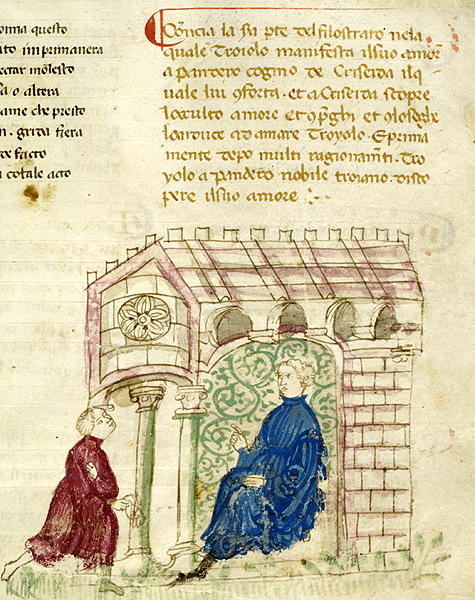 onna questo
ato in primauera
ectar molesto
o altera
ame che presto
grida fiera
te facto
cotale acto
Cōīncia la iia pte del filostrato nela
quale Troiolo manifesta ilsuo amor
a pandero cogino de Criseida ilq
uale lui ꝯforta. et a Criseida scopre
locculto amore et ꝯp̄ghi et ꝯloseghe
larduce ad amare Troyolo. Eprima
mente depo multi ragionam̄ti. Tro
yolo a pandero nobile troiano. disco
pre ilsuo amore